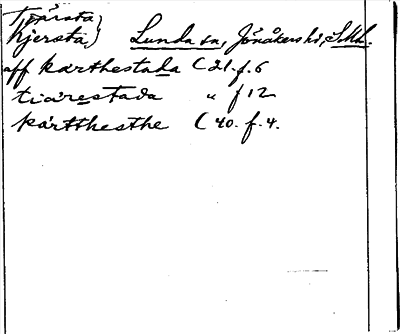 Tjärsta
Kjersta} Lunda sn, Jönåkers hd, Skl.
aff kærthestada (21. f. 6
tiærestada " f 12
kærtthesthe (40. f. 4.